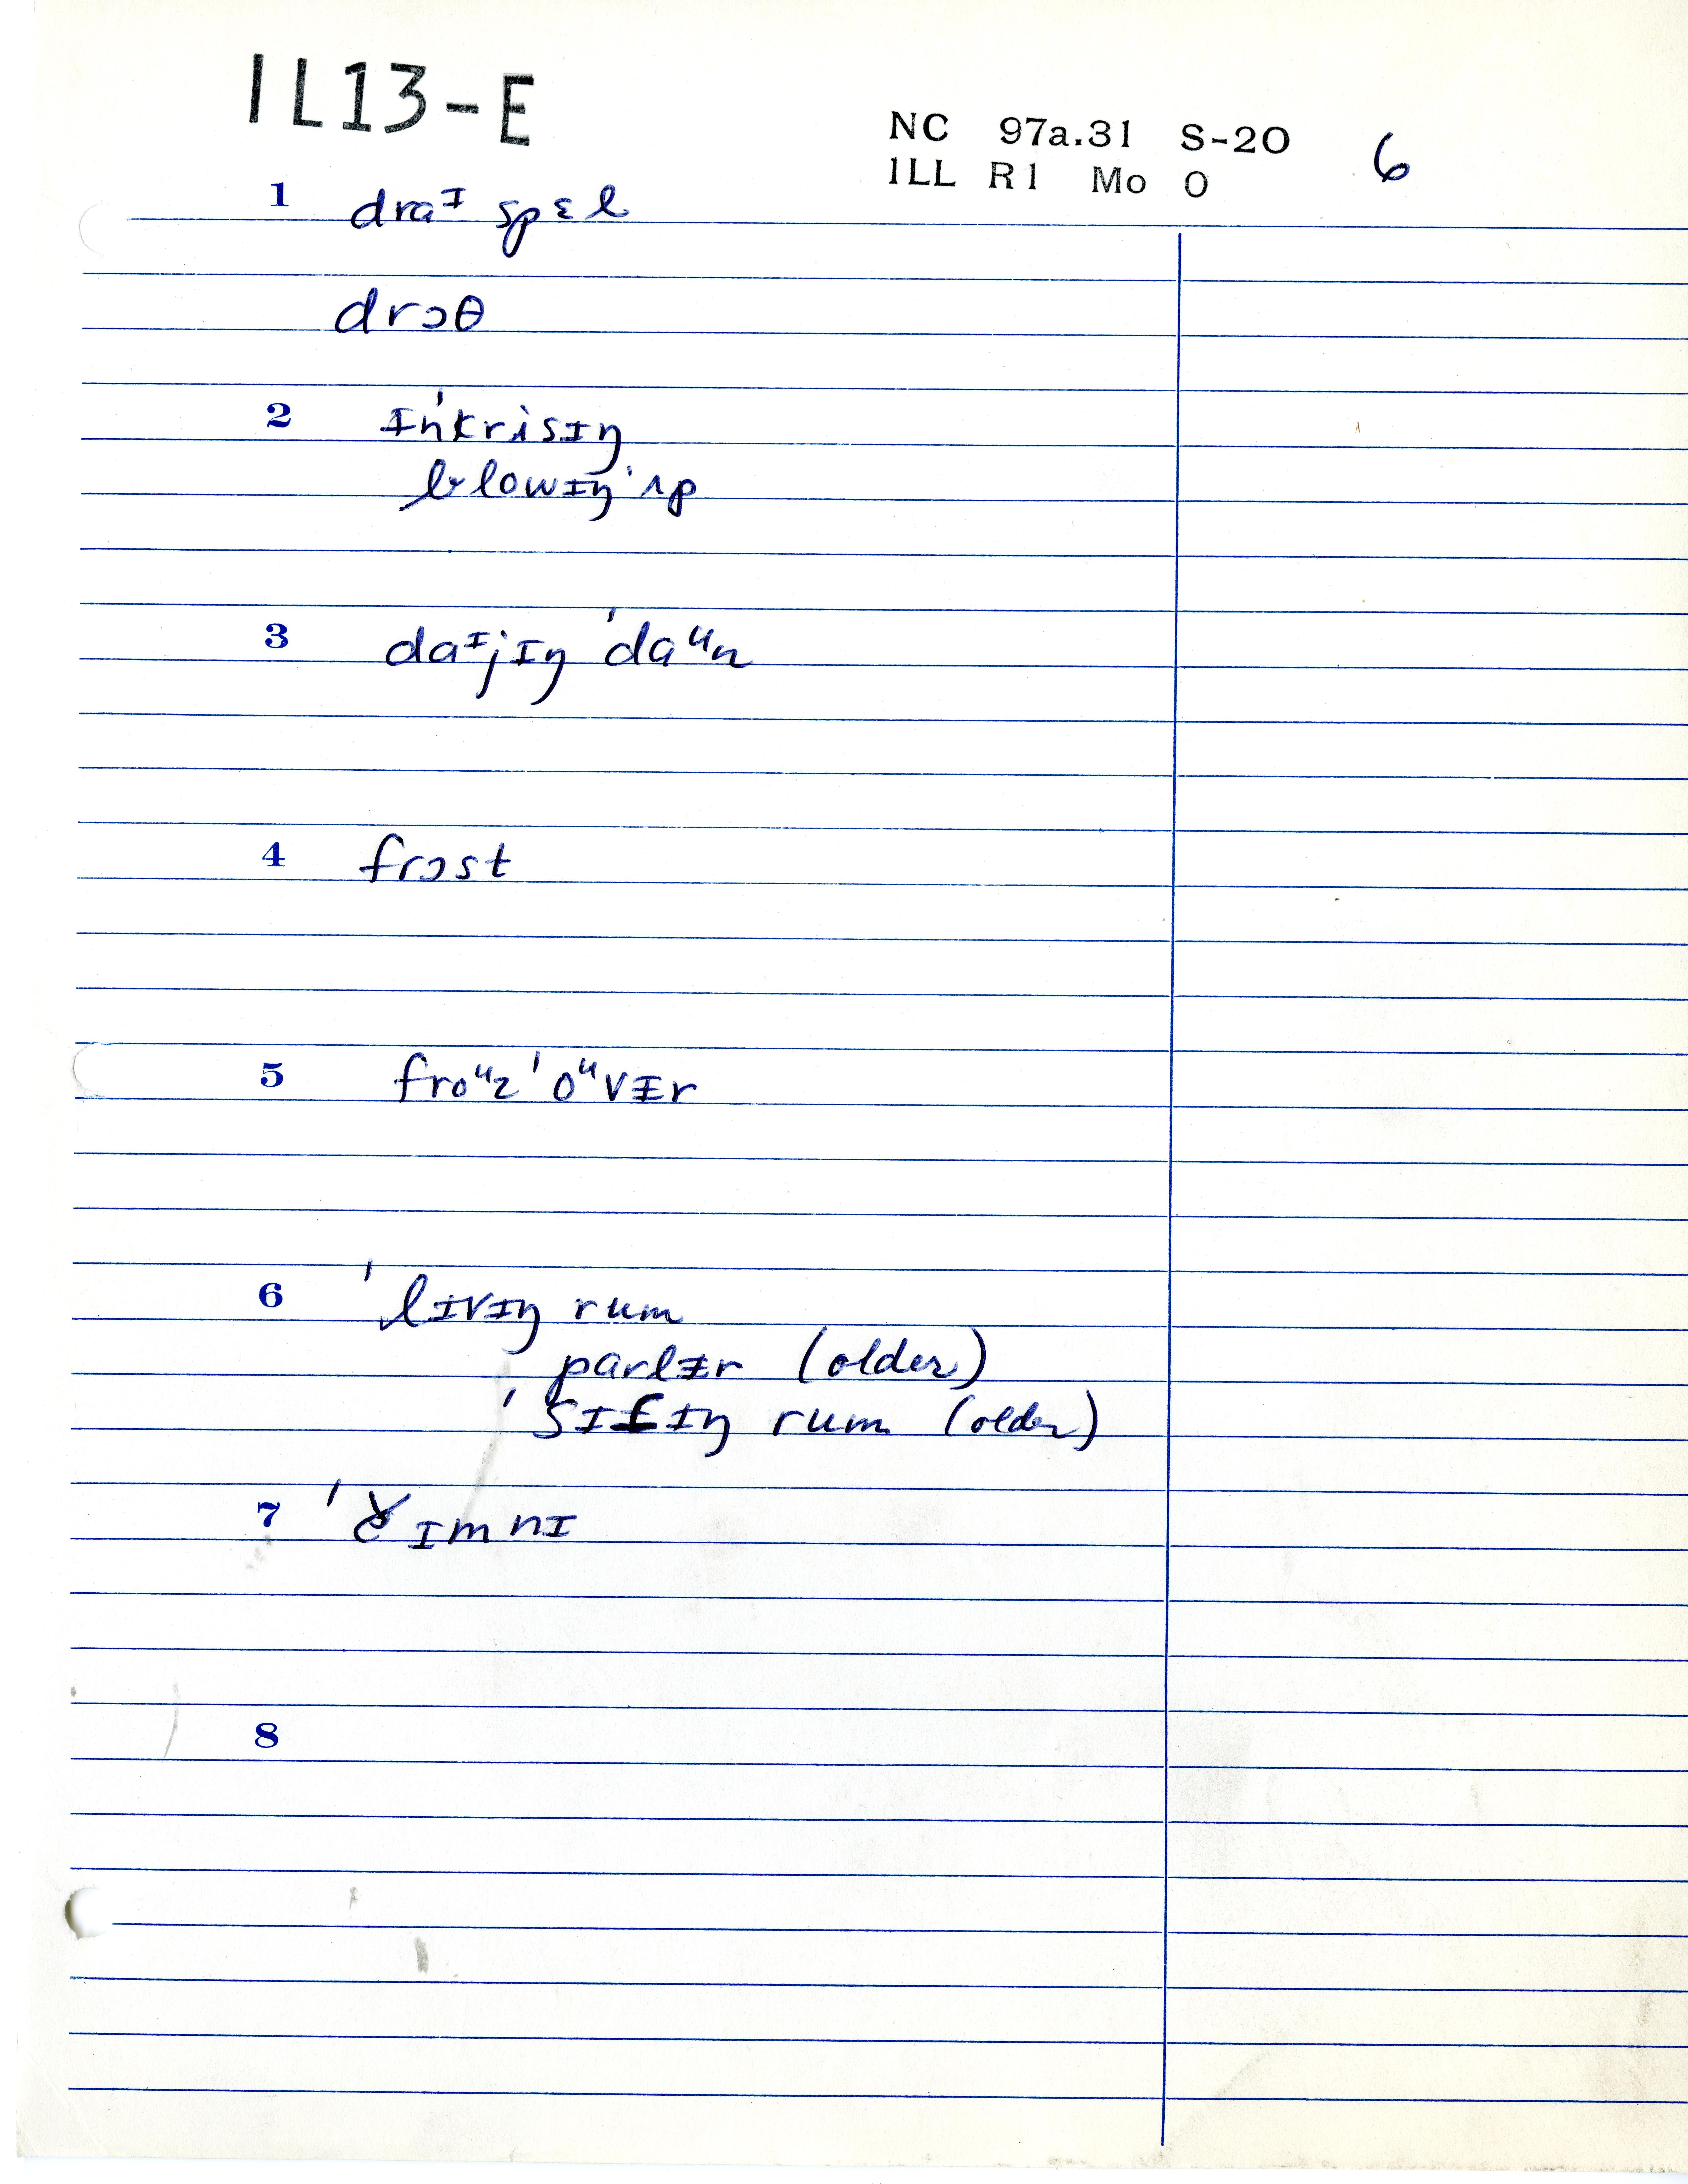 IL13-E
NC 97a.31 S-20 6
ILL R1 Mo O
1 draᶦ spɛl
drɔθ
2 ɪn'krisɪŋ
blowɪŋ 'ʌp
3 daᶦjɪŋ 'daᵘn
4 frɔst
5 froᵘz 'oᵘvᵻr
6 'lɪvɪŋ rum
parlᵻr (older)
'sɪt̬ɪŋ rum (older)
7 'č̣ɪmnɪ
8